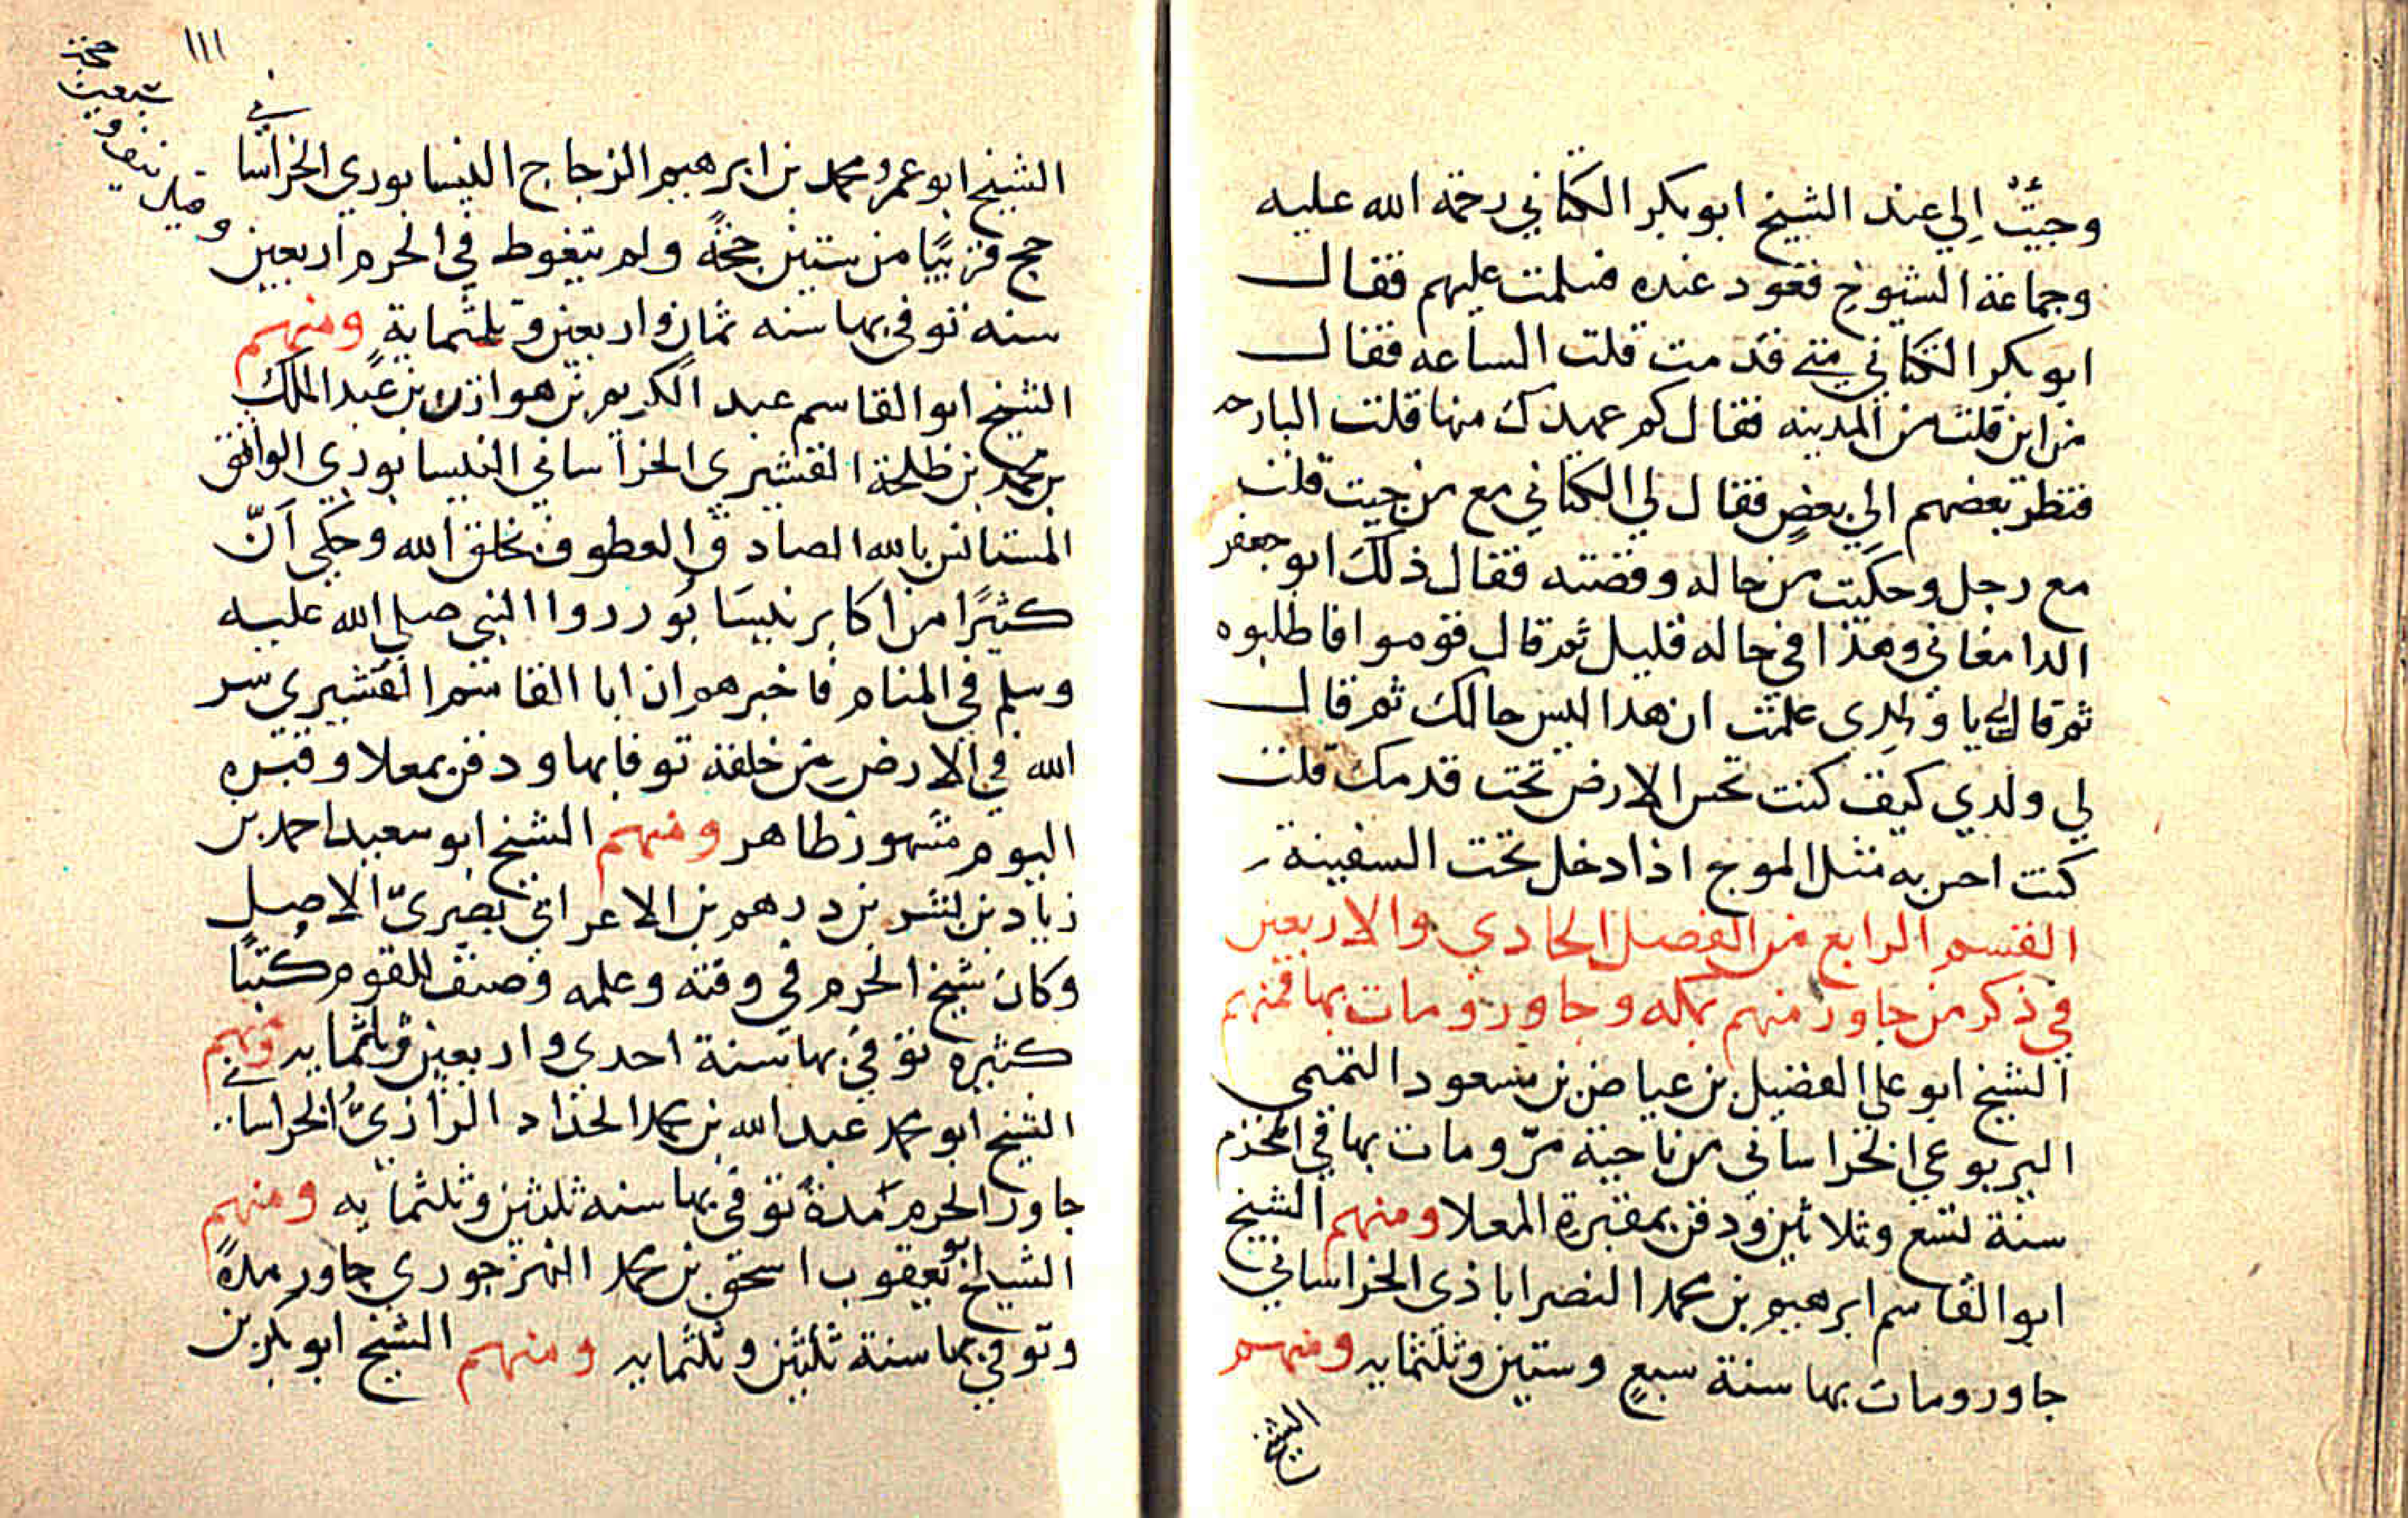 وجيئتُ إلي عند الشيخ ابو بكر الكتاني رحمة الله عليه
وجماعة الشيوخ قعود عنده فسلمت عليهم فقال
ابو بكر الكتاني متي قدمت قلت الساعه فقال
من اين قلت من المدينه فقال كم عهدك منها قلت البارحه
فنظر بعضهم الي بعضٍ فقال لي الكتاني مع من جيت قلت
مع رجل وحكيت من حاله وقصته فقال ذلك ابو جعفر
الدامغاني وهذا في حاله قليل ثم قال قوموا فاطلبوه
ثم قال لي يا ولدي علمت ان هذا ليس حالك ثم قال
لي ولدي كيف كنت تحس الارض تحت قدمك قلت
كنت احس به مثل الموج اذا دخل تحت السفينة
القسم الرابع من الفصل الحادي والاربعين
في ذكر من جاور منهم بمكه وجاور ومات بها فمنهم
الشيخ ابو علي الفضيل بن عياض بن مسعود التميمي
اليربوعي الخراساني من ناحية مرو مات بها في المحرم
سنة تسع وثلاثين ودفن بمقبرة المعلا ومنهم الشيخ
ابو القاسم ابرهيم بن محمد النصراباذي الخراساني
جاور ومات بها سنة سبعٍ وستين وثلثمايه ومنهم
الشيخ
١١١
الشيخ ابو عمرو محمد بن ابرهيم الزجاج النيسابوري الخراساني
حج قريبًا من ستين حجةً ولم يتغوط في الحرم اربعين
وقيل نيف و
سبعين
حجة
سنه توفي بها سنه ثمان واربعين وثلثماية ومنهم
الشيخ ابو القاسم عبد الكريم بن هوازن بن عبد الملك
بن محمد بن طلحة القشيري الخراساني النيسابوري الواثق
المستانس بالله الصادق العطوف بخلق الله وحكي انّ
كثيرًا من اكابر نيسابور روا النبي صلي الله عليه
وسلم في المنام فاخبرهم ان ابا القاسم القشيري سر
الله في الارض من خلقه توفا بها ودفن بمعلا وقبره
اليوم مشهور ظاهر ومنهم الشيخ ابو سعيد احمد بن
زياد بن بشر بن درهم بن الاعرابي بصريّ الاصل
وكان شيخ الحرم في وقته وعلمه وصنف للقوم كتبًا
كثيره توفي بها سنة احدي واربعين وثلثمايه ومنهم
الشيخ ابو محمد عبد الله بن محمد الحداد الرازيّ الخراساني
جاور الحرم مدة توفي بها سنه ثلثين وثلثمايه ومنهم
الشيخ ابو يعقوب اسحق بن محمد النهرجوري جاور مدةً
وتوفي بها سنة ثلثين وثلثمايه ومنهم الشيخ ابو بكر بن